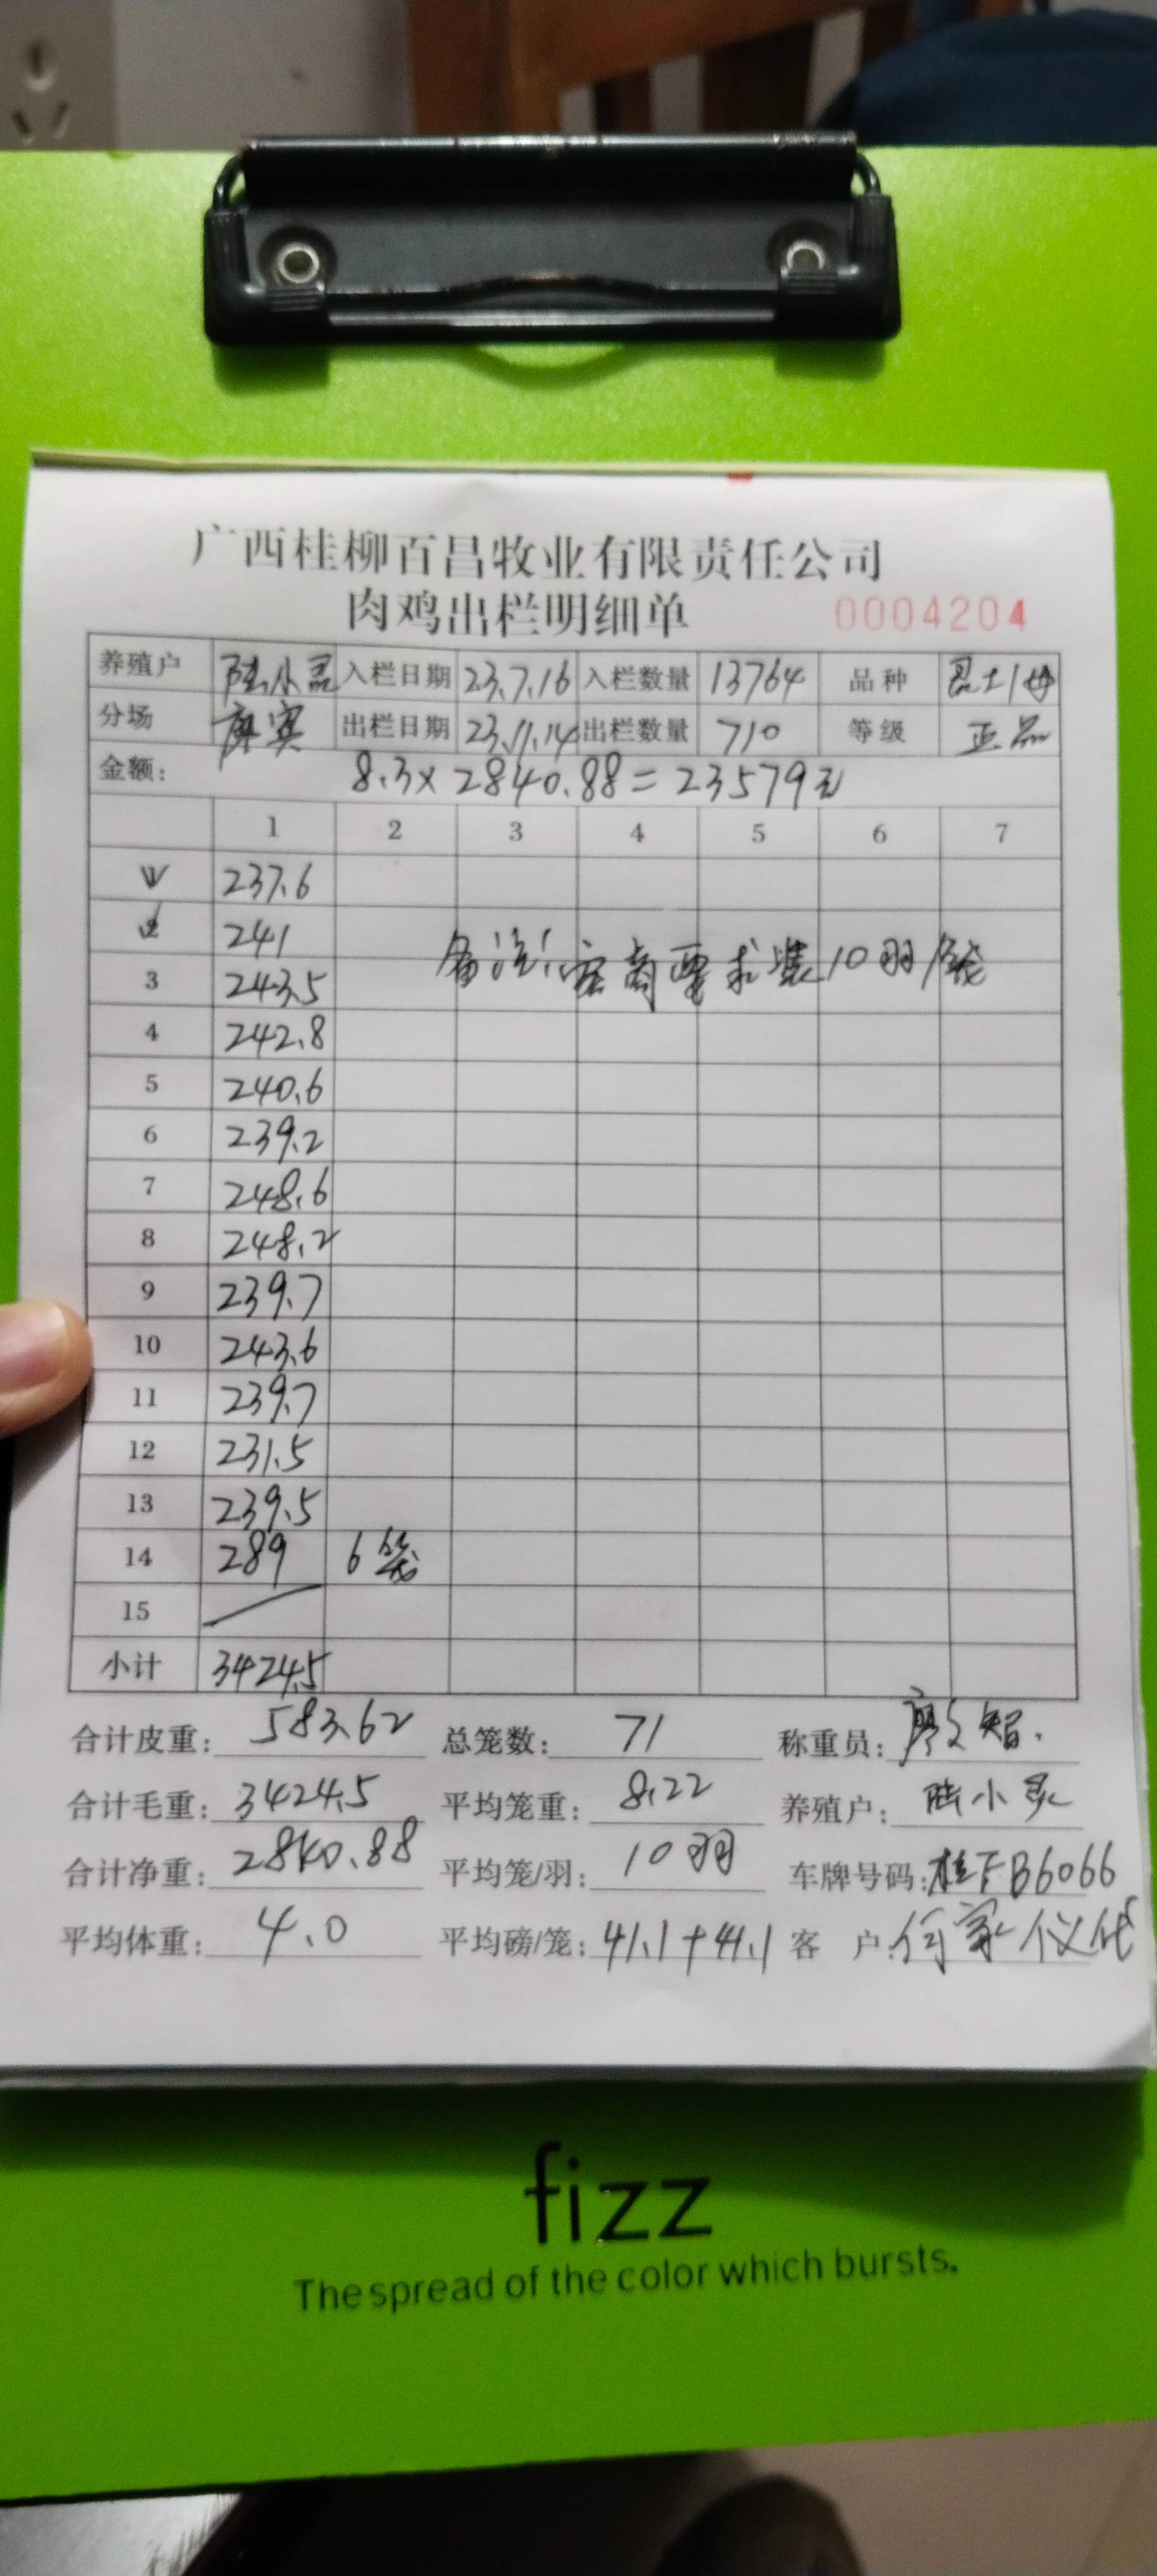 广西桂柳百昌牧业有限责任公司
肉鸡出栏明细单 0004204
养殖户 陆小灵 入栏日期 23.7.16 入栏数量 13764 品种
分场 出栏日期 23.11.14 出栏数量 710 等级 正品
金额: 8.3×2840.88=23579元
1 2 3 4 5 6 7
1 237.6
2 241
备注:客商要求装10羽/笼
3 243.5
4 242.8
5 240.6
6 239.2
7 248.6
8 248.2
9 239.7
10 243.6
11 239.7
12 231.5
13 239.5
14 289 6笼
15
小计 3424.5
合计皮重: 583.62 总笼数: 71 称重员: 廖文智.
合计毛重: 3424.5 平均笼重: 8.22 养殖户: 陆小灵
合计净重: 2840.88 平均笼/羽: 10羽 车牌号码: 桂FB6066
平均体重: 4.0 平均磅/笼: 41.1+41.1 客 户: 何家仪代
fizz
The spread of the color which bursts.